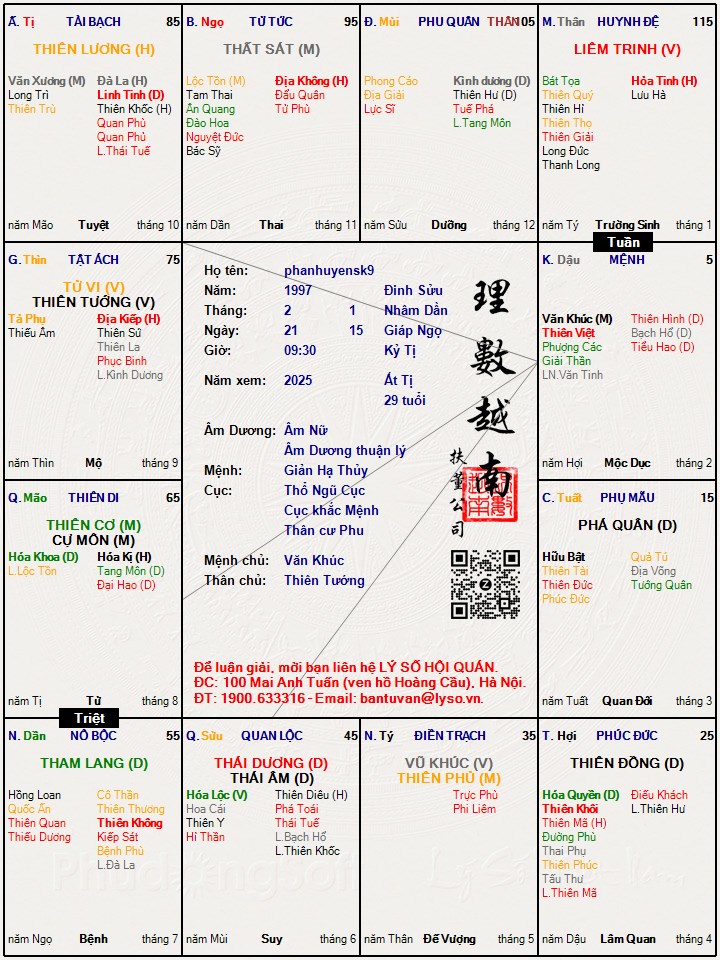 Ấ. Tị TÀI BẠCH 85
THIÊN LƯƠNG (H)
Văn Xương (M) Đà La (H)
Long Trì Linh Tinh (D)
Thiên Trù Thiên Khốc (H)
Quan Phù
Quan Phủ
L.Thái Tuế
năm Mão Tuyệt tháng 10
B. Ngọ TỬ TỨC 95
THẤT SÁT (M)
Lộc Tồn (M) Địa Không (H)
Tam Thai Đẩu Quân
Ân Quang Tử Phù
Đào Hoa
Nguyệt Đức
Bác Sỹ
năm Dần Thai tháng 11
Đ. Mùi PHU QUÂN THÂN 105
Phong Cáo Kình dương (D)
Địa Giải Thiên Hư (D)
Lực Sĩ Tuế Phá
L.Tang Môn
năm Sửu Dưỡng tháng 12
M. Thân HUYNH ĐỆ 115
LIÊM TRINH (V)
Bát Tọa Hỏa Tinh (H)
Thiên Quý Lưu Hà
Thiên Hỉ
Thiên Thọ
Thiên Giải
Long Đức
Thanh Long
năm Tý Trường Sinh tháng 1
Tuần
G. Thìn TẬT ÁCH 75
TỬ VI (V)
THIÊN TƯỚNG (V)
Tả Phụ Địa Kiếp (H)
Thiếu Âm Thiên Sứ
Thiên La
Phục Binh
L.Kình Dương
năm Thìn Mộ tháng 9
Họ tên: phanhuyensk9
Năm: 1997 Đinh Sửu
Tháng: 2 1 Nhâm Dần
Ngày: 21 15 Giáp Ngọ
Giờ: 09:30 Kỷ Tị
Năm xem: 2025 Ất Tị
29 tuổi
Âm Dương: Âm Nữ
Âm Dương thuận lý
Mệnh: Giản Hạ Thủy
Cục: Thổ Ngũ Cục
Cục khắc Mệnh
Thân cư Phu
Mệnh chủ: Văn Khúc
Thân chủ: Thiên Tướng
理數越南
扶董公司
Để luận giải, mời bạn liên hệ LÝ SỐ HỘI QUÁN.
ĐC: 100 Mai Anh Tuấn (ven hồ Hoàng Cầu), Hà Nội.
ĐT: 1900.633316 - Email: bantuvan@lyso.vn.
K. Dậu MỆNH 5
Văn Khúc (M) Thiên Hình (D)
Thiên Việt Bạch Hổ (D)
Phượng Các Tiểu Hao (D)
Giải Thần
LN.Văn Tinh
năm Hợi Mộc Dục tháng 2
Q. Mão THIÊN DI 65
THIÊN CƠ (M)
CỰ MÔN (M)
Hóa Khoa (D) Hóa Kị (H)
L.Lộc Tồn Tang Môn (D)
Đại Hao (D)
năm Tị Tử tháng 8
Triệt
C. Tuất PHỤ MẪU 15
PHÁ QUÂN (D)
Hữu Bật Quả Tú
Thiên Tài Địa Võng
Thiên Đức Tướng Quân
Phúc Đức
năm Tuất Quan Đới tháng 3
N. Dần NÔ BỘC 55
THAM LANG (D)
Hồng Loan Cô Thần
Quốc Ấn Thiên Thương
Thiên Quan Thiên Không
Thiếu Dương Kiếp Sát
Bệnh Phù
L.Đà La
năm Ngọ Bệnh tháng 7
Q. Sửu QUAN LỘC 45
THÁI DƯƠNG (D)
THÁI ÂM (D)
Hóa Lộc (V) Thiên Diêu (H)
Hoa Cái Phá Toái
Thiên Y Thái Tuế
Hỉ Thần L.Bạch Hổ
L.Thiên Khốc
năm Mùi Suy tháng 6
N. Tý ĐIỀN TRẠCH 35
VŨ KHÚC (V)
THIÊN PHỦ (M)
Trực Phù
Phi Liêm
năm Thân Đế Vượng tháng 5
T. Hợi PHÚC ĐỨC 25
THIÊN ĐỒNG (D)
Hóa Quyền (D) Điếu Khách
Thiên Khôi L.Thiên Hư
Thiên Mã (H)
Đường Phù
Thai Phụ
Thiên Phúc
Tấu Thư
L.Thiên Mã
năm Dậu Lâm Quan tháng 4